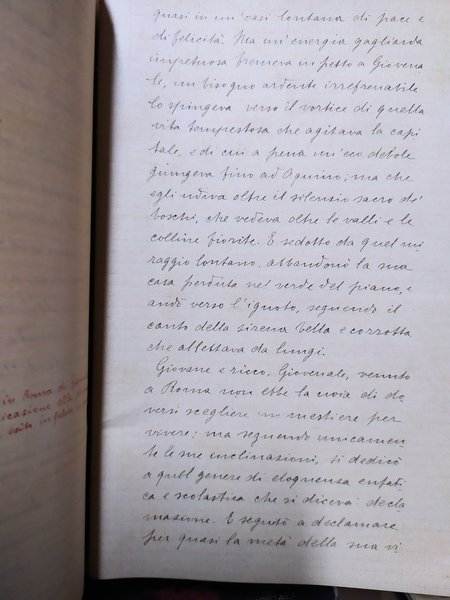 quasi in un'oasi lontana di pace e
di felicità. Ma un'energia gagliarda
impetuosa fremeva in petto a Giovena
le, un bisogno ardente irrefrenabile
lo spingeva verso il vortice di quella
vita tempestosa che agitava la capi
tale, e di cui a pena un'eco debole
giungeva fino ad Aquino; ma che
egli udiva oltre il silenzio sacro de'
boschi, che vedeva oltre le valli e le
colline fiorite. E sedotto da quel mi
raggio lontano, abbandonò la sua
casa perduta nel verde del piano, e
andò verso l'ignoto, seguendo il
canto della sirena bella e corrotta
che allettava da lungi.
Giovane e ricco, Giovenale, venuto
a Roma non ebbe la noia di do
versi scegliere un mestiere per
vivere; ma seguendo unicamen
te le sue inclinazioni, si dedicò
a quell genere di eloquenza enfati
ca e scolastica che si diceva: decla
mazione. E seguitò a declamare
per quasi la metà della sua vi
in Roma di
icazione alla
esito infelice